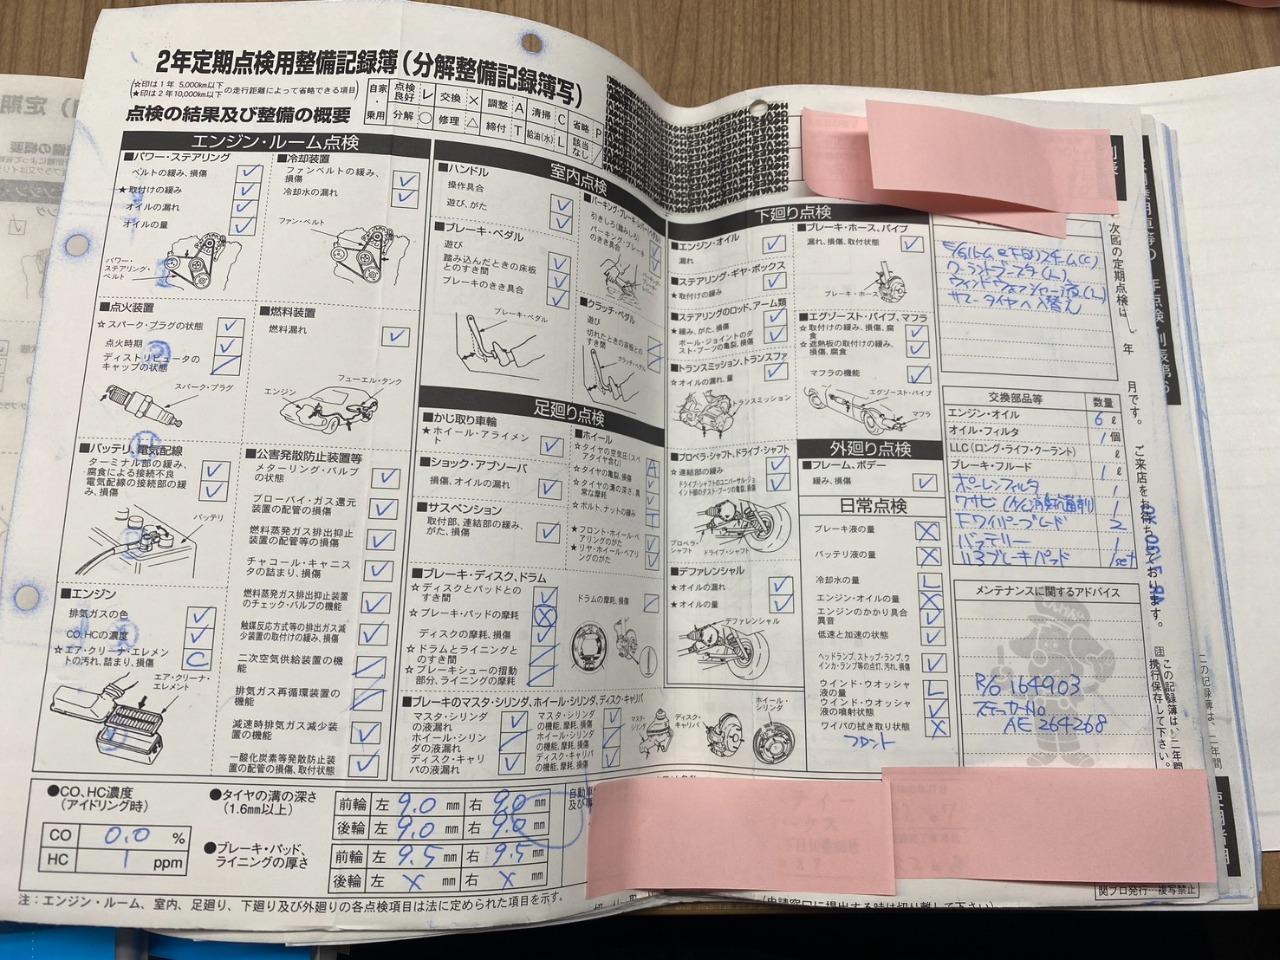 2年定期点検用整備記録簿(分解整備記録簿写)
☆印は1年 5,000km以下
★印は2年10,000km以下
の走行距離によって省略できる項目
点検の結果及び整備の概要
自家・乗用
点検良好 レ 交換 × 調整 A 清掃 C 省略 P
分解 ○ 修理 △ 締付 T 給油(水) L 該当なし /
エンジン・ルーム点検
■パワー・ステアリング
ベルトの緩み、損傷
★取付けの緩み
オイルの漏れ
オイルの量
パワー・ステアリング・ベルト
■冷却装置
ファンベルトの緩み、損傷
冷却水の漏れ
ファン・ベルト
■点火装置
☆スパーク・プラグの状態
点火時期
ディストリビュータのキャップの状態
スパーク・プラグ
■燃料装置
燃料漏れ
フューエル・タンク
エンジン
■バッテリ、電気配線
ターミナル部の緩み、腐食による接続不良
電気配線の接続部の緩み、損傷
バッテリ
■公害発散防止装置等
メターリング・バルブの状態
ブローバイ・ガス還元装置の配管の損傷
燃料蒸発ガス排出抑止装置の配管等の損傷
チャコール・キャニスタの詰まり、損傷
燃料蒸発ガス排出抑止装置のチェック・バルブの機能
触媒反応方式等の排出ガス減少装置の取付けの緩み、損傷
二次空気供給装置の機能
排気ガス再循環装置の機能
減速時排気ガス減少装置の機能
一酸化炭素等発散防止装置の配管の損傷、取付状態
■エンジン
排気ガスの色
CO、HCの濃度
☆エア・クリーナ・エレメントの汚れ、詰まり、損傷
C
エア・クリーナ・エレメント
室内点検
■ハンドル
操作具合
遊び、がた
■ブレーキ・ペダル
遊び
踏み込んだときの床板とのすき間
ブレーキのきき具合
ブレーキ・ペダル
引きしろ(踏みしろ)
パーキング・ブレーキのきき具合
■クラッチ・ペダル
遊び
切れたときの床板とのすき間
クラッチ・ペダル
足廻り点検
■かじ取り車輪
★ホイール・アライメント
■ショック・アブソーバ
損傷、オイルの漏れ
■サスペンション
取付部、連結部の緩み、がた、損傷
■ホイール
☆タイヤの空気圧(スペアタイヤ含む) A
☆タイヤの亀裂、損傷
☆タイヤの溝の深さ、異常な摩耗
☆ボルト、ナットの緩み T
★フロント・ホイール・ベアリングのがた
★リヤ・ホイール・ベアリングのがた
■ブレーキ・ディスク、ドラム
☆ディスクとパッドとのすき間
☆ブレーキ・パッドの摩耗
ディスクの摩耗、損傷
☆ドラムとライニングとのすき間
☆ブレーキシューの摺動部分、ライニングの摩耗
ドラムの摩耗、損傷
■ブレーキのマスタ・シリンダ、ホイール・シリンダ、ディスク・キャリパ
マスタ・シリンダの液漏れ
ホイール・シリンダの液漏れ
ディスク・キャリパの液漏れ
マスタ・シリンダの機能、摩耗、損傷
ホイール・シリンダの機能、摩耗、損傷
ディスク・キャリパの機能、摩耗、損傷
マスタ・シリンダ
ディスク・キャリパ
ホイール・シリンダ
下廻り点検
■エンジン・オイル
漏れ
■ステアリング・ギヤ・ボックス
★取付けの緩み
■ステアリングのロッド、アーム類
★緩み、がた、損傷
ボール・ジョイントのダスト・ブーツの亀裂、損傷
■トランスミッション、トランスファ
☆オイルの漏れ、量
トランスミッション
■プロペラ・シャフト、ドライブ・シャフト
☆連結部の緩み
ドライブ・シャフトのユニバーサル・ジョイント部のダスト・ブーツの亀裂、損傷
プロペラ・シャフト
ドライブ・シャフト
■デファレンシャル
☆オイルの漏れ
☆オイルの量
デファレンシャル
■ブレーキ・ホース、パイプ
漏れ、損傷、取付状態
ブレーキ・ホース
■エグゾースト・パイプ、マフラ
☆取付けの緩み、損傷、腐食
☆遮熱板の取付けの緩み、損傷、腐食
マフラの機能
エグゾースト・パイプ
マフラ
外廻り点検
■フレーム、ボデー
緩み、損傷
日常点検
ブレーキ液の量 X
バッテリ液の量 X
冷却水の量 L
エンジン・オイルの量 X
エンジンのかかり具合 異音
低速と加速の状態
ヘッドランプ、ストップ・ランプ、ウインカ・ランプ等の点灯、汚れ、損傷
ウインド・ウオッシャ液の量 L
ウインド・ウオッシャ液の噴射状態
ワイパの拭き取り状態 X
フロント
クーラントブースタ(L)
ウィンドウォッシャー液(L)
サマータイヤへ入替え
交換部品等 数量
エンジン・オイル 6 ℓ
オイル・フィルタ 1 個
LLC(ロング・ライフ・クーラント) ℓ
ブレーキ・フルード 1 ℓ
ポーレンフィルタ 1
ワサビ(A/C消臭抗菌剤) 1
Fワイパーブレード 2
バッテリー 1
Frブレーキパッド 1set
メンテナンスに関するアドバイス
R/O 164903
ステッカーNo
AE 264268
次回の定期点検は、 年 月です。 ご来店をお待ちしております。
この記録簿は、二年間携行保存して下さい。
この記録簿は、二年間
●CO、HC濃度
(アイドリング時)
CO 0.0 %
HC 1 ppm
●タイヤの溝の深さ
(1.6mm以上)
前輪 左 9.0 mm 右 9.0 mm
後輪 左 9.0 mm 右 9.0 mm
●ブレーキ・パッド、ライニングの厚さ
前輪 左 9.5 mm 右 9.5 mm
後輪 左 × mm 右 × mm
注:エンジン・ルーム、室内、足廻り、下廻り及び外廻りの各点検項目は法に定められた項目を示す。
関プロ発行—複写禁止